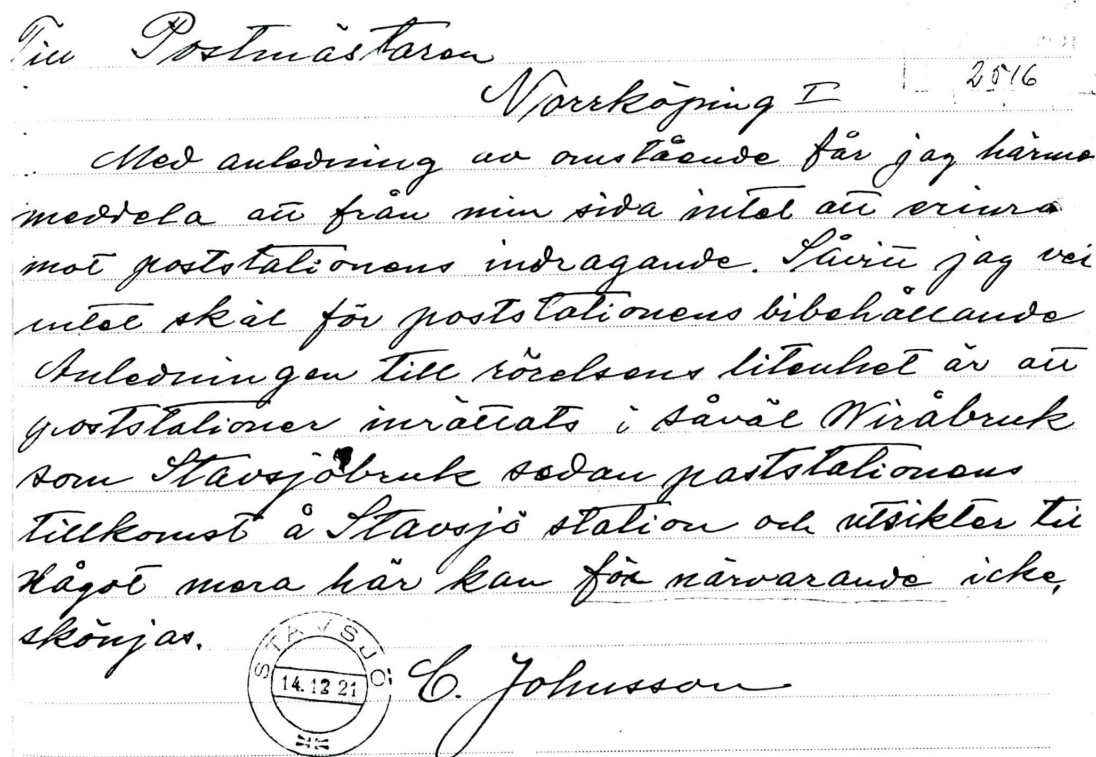 Till Postmästaren
2516
Norrköping I
Med anledning av omstående får jag härmed
meddela att från min sida intet att erinra
mot poststationens indragande. Såvitt jag vet
intet skäl för poststationens bibehållande
Anledningen till rörelsens litenhet är att
poststationer inrättats i såväl Wiråbruk
som Stavsjöbruk sedan poststationens
tillkomst å Stavsjö station och utsikter till
något mera här kan för närvarande icke,
skönjas.
STAVSJÖ
14.12 21
C. Johnsson